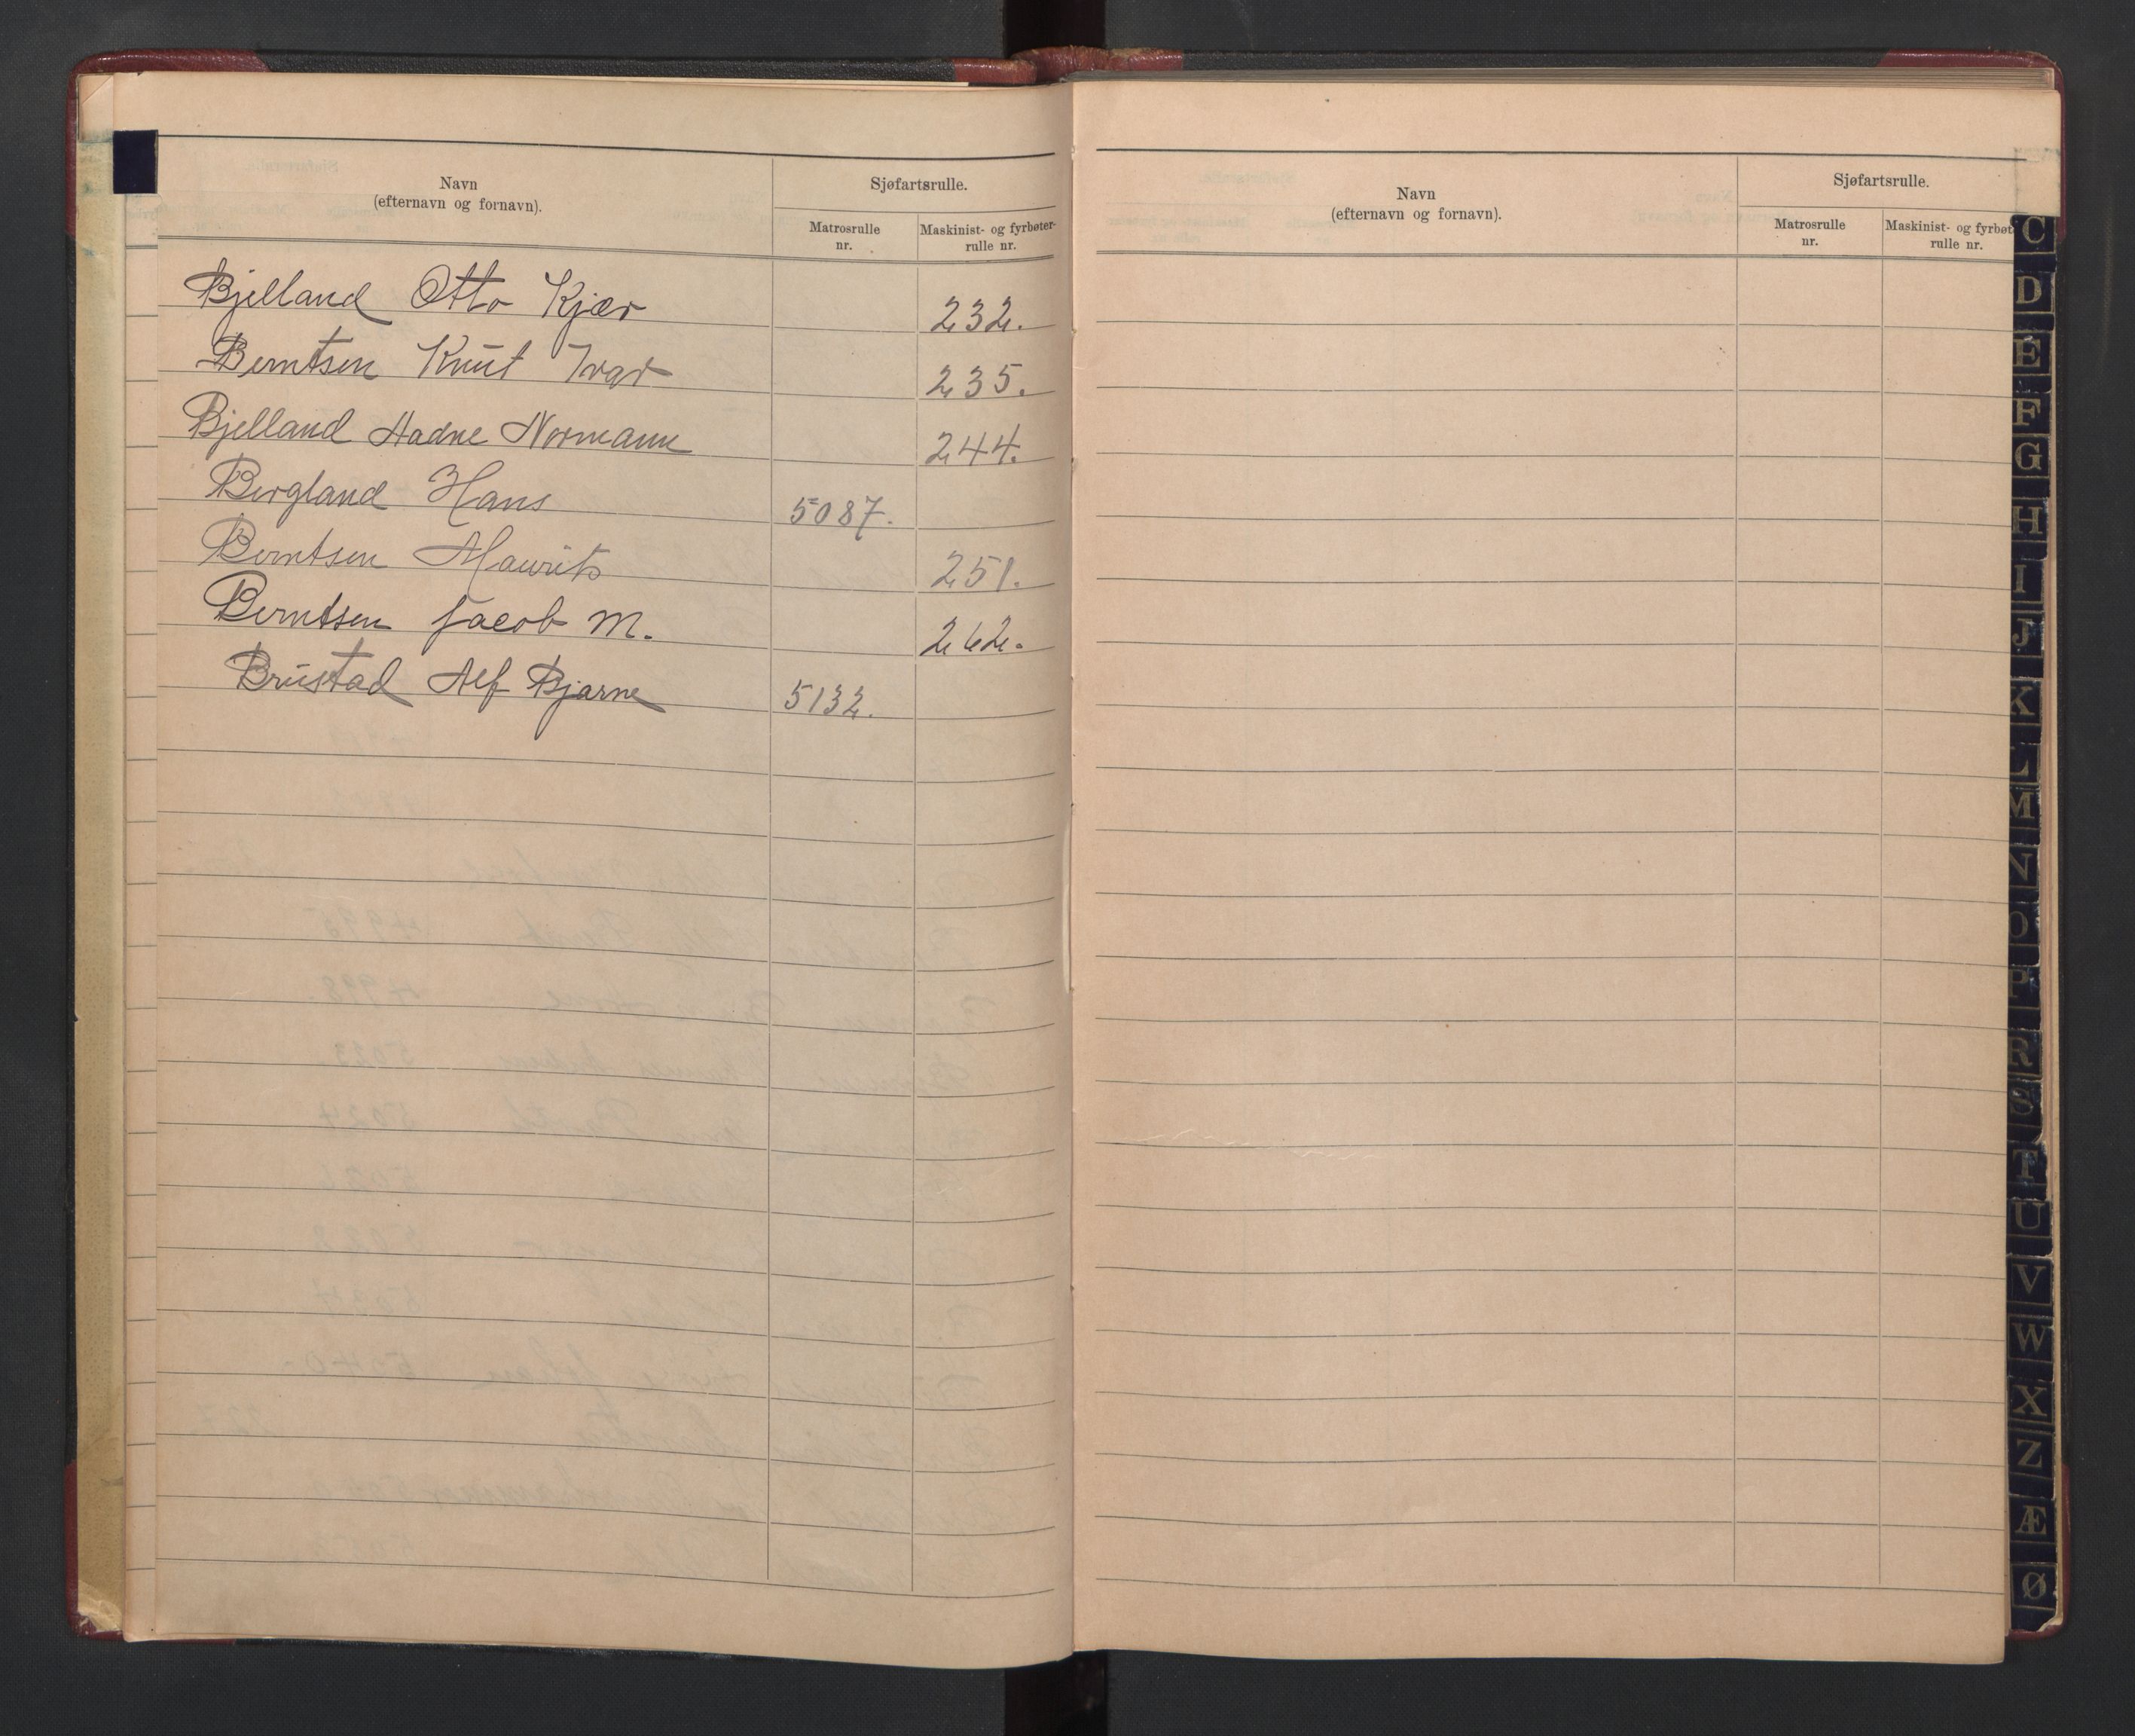 Navn
(efternavn og fornavn).
Sjøfartsrulle.
Matrosrulle
nr.
Maskinist- og fyrbøter-
rulle nr.
Bjelland Otto Kjær 232.
Berntsen Knut Ivar 235.
Bjelland Aadne Normann 244.
Bergland Hans 5087.
Berntsen Maurits 251.
Berntsen Jacob M. 262.
Brustad Alf Bjarne 5132.
Navn
(efternavn og fornavn).
Sjøfartsrulle.
Matrosrulle
nr.
Maskinist- og fyrbøt
rulle nr.
C
D
E
F
G
H
I
J
K
L
M
N
O
P
R
S
T
U
V
W
X
Z
Æ
Ø